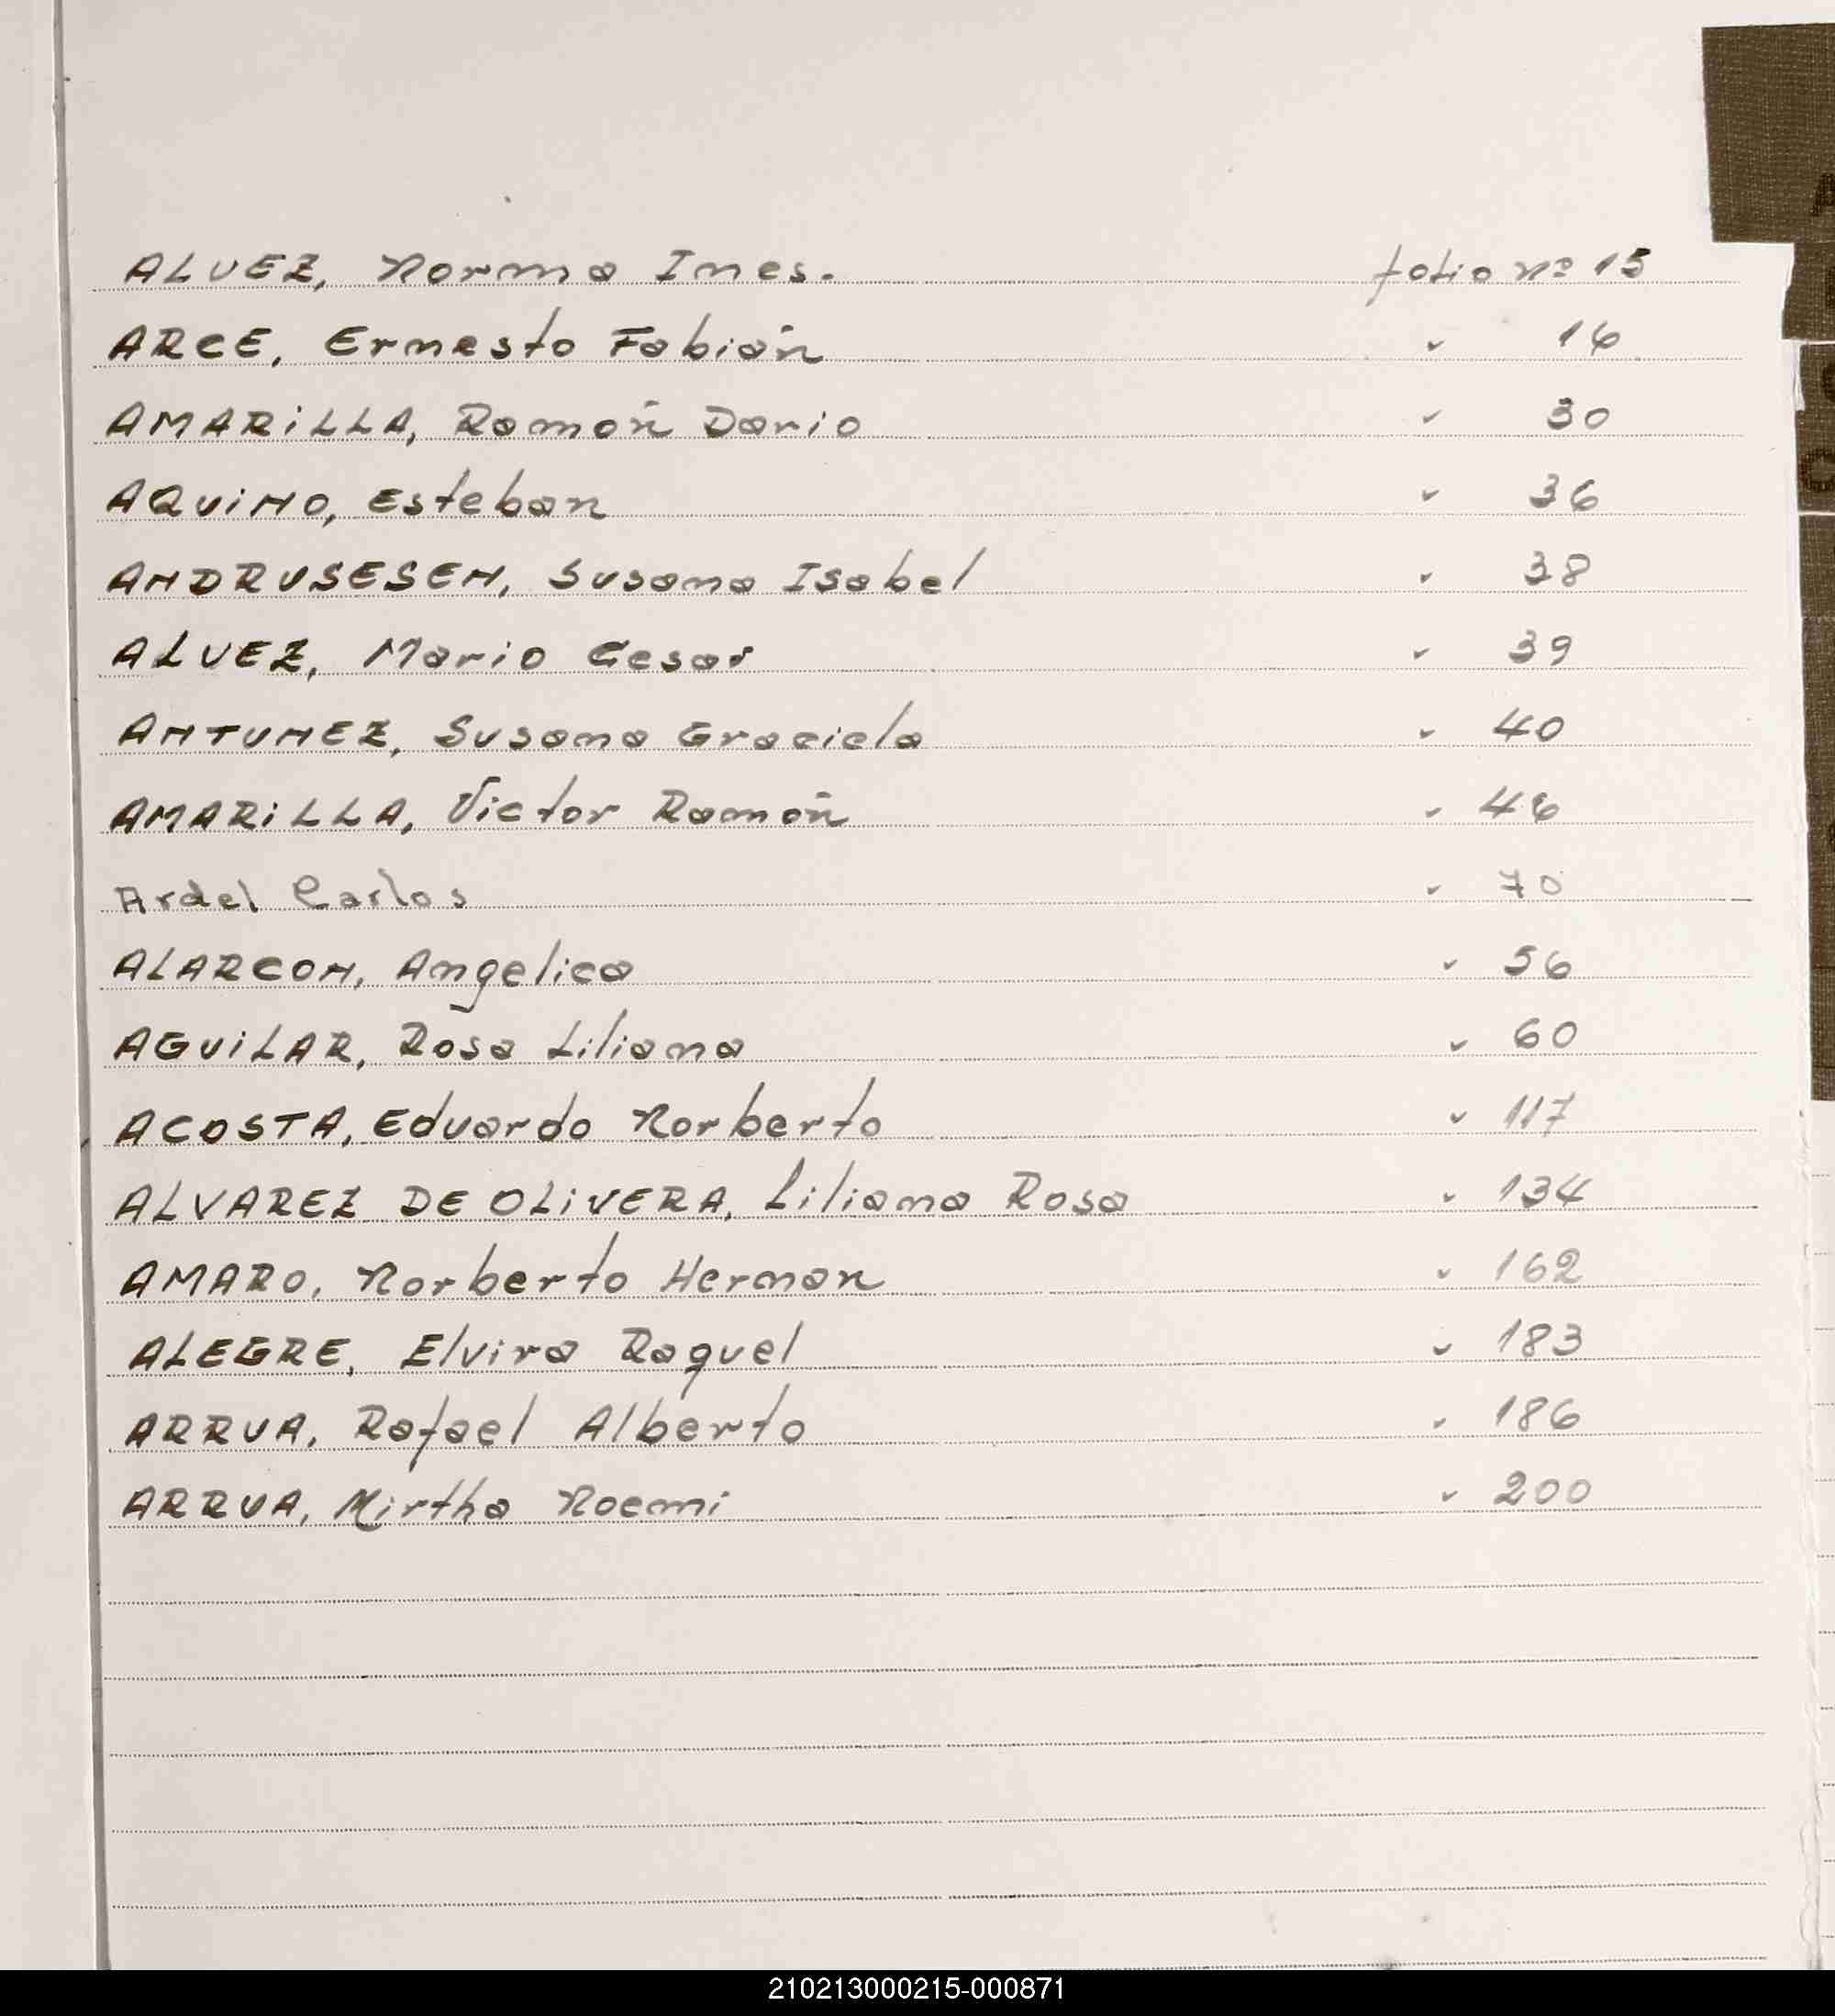 ALVEZ, Norma Ines. folio nº 15
ARCE, Ernesto Fabián " 16
AMARiLLA, Ramón Dario " 30
AQUiNO, Esteban " 36
ANDRUSESEN, Susana Isabel " 38
ALVEZ, Mario Cesar " 39
ANTUNEZ, Susana Graciela " 40
AMARiLLA, Victor Ramón " 46
Ardel Carlos " 70
ALARCON, Angelica " 56
AGUiLAR, Rosa Liliana " 60
ACOSTA, Eduardo Norberto " 117
ALVAREZ DE OLiVERA, Liliana Rosa " 134
AMARO, Norberto Hernan " 162
ALEGRE, Elvira Raquel " 183
ARRUA, Rafael Alberto " 186
ARRUA, Mirtha Noemi " 200
210213000215-000871